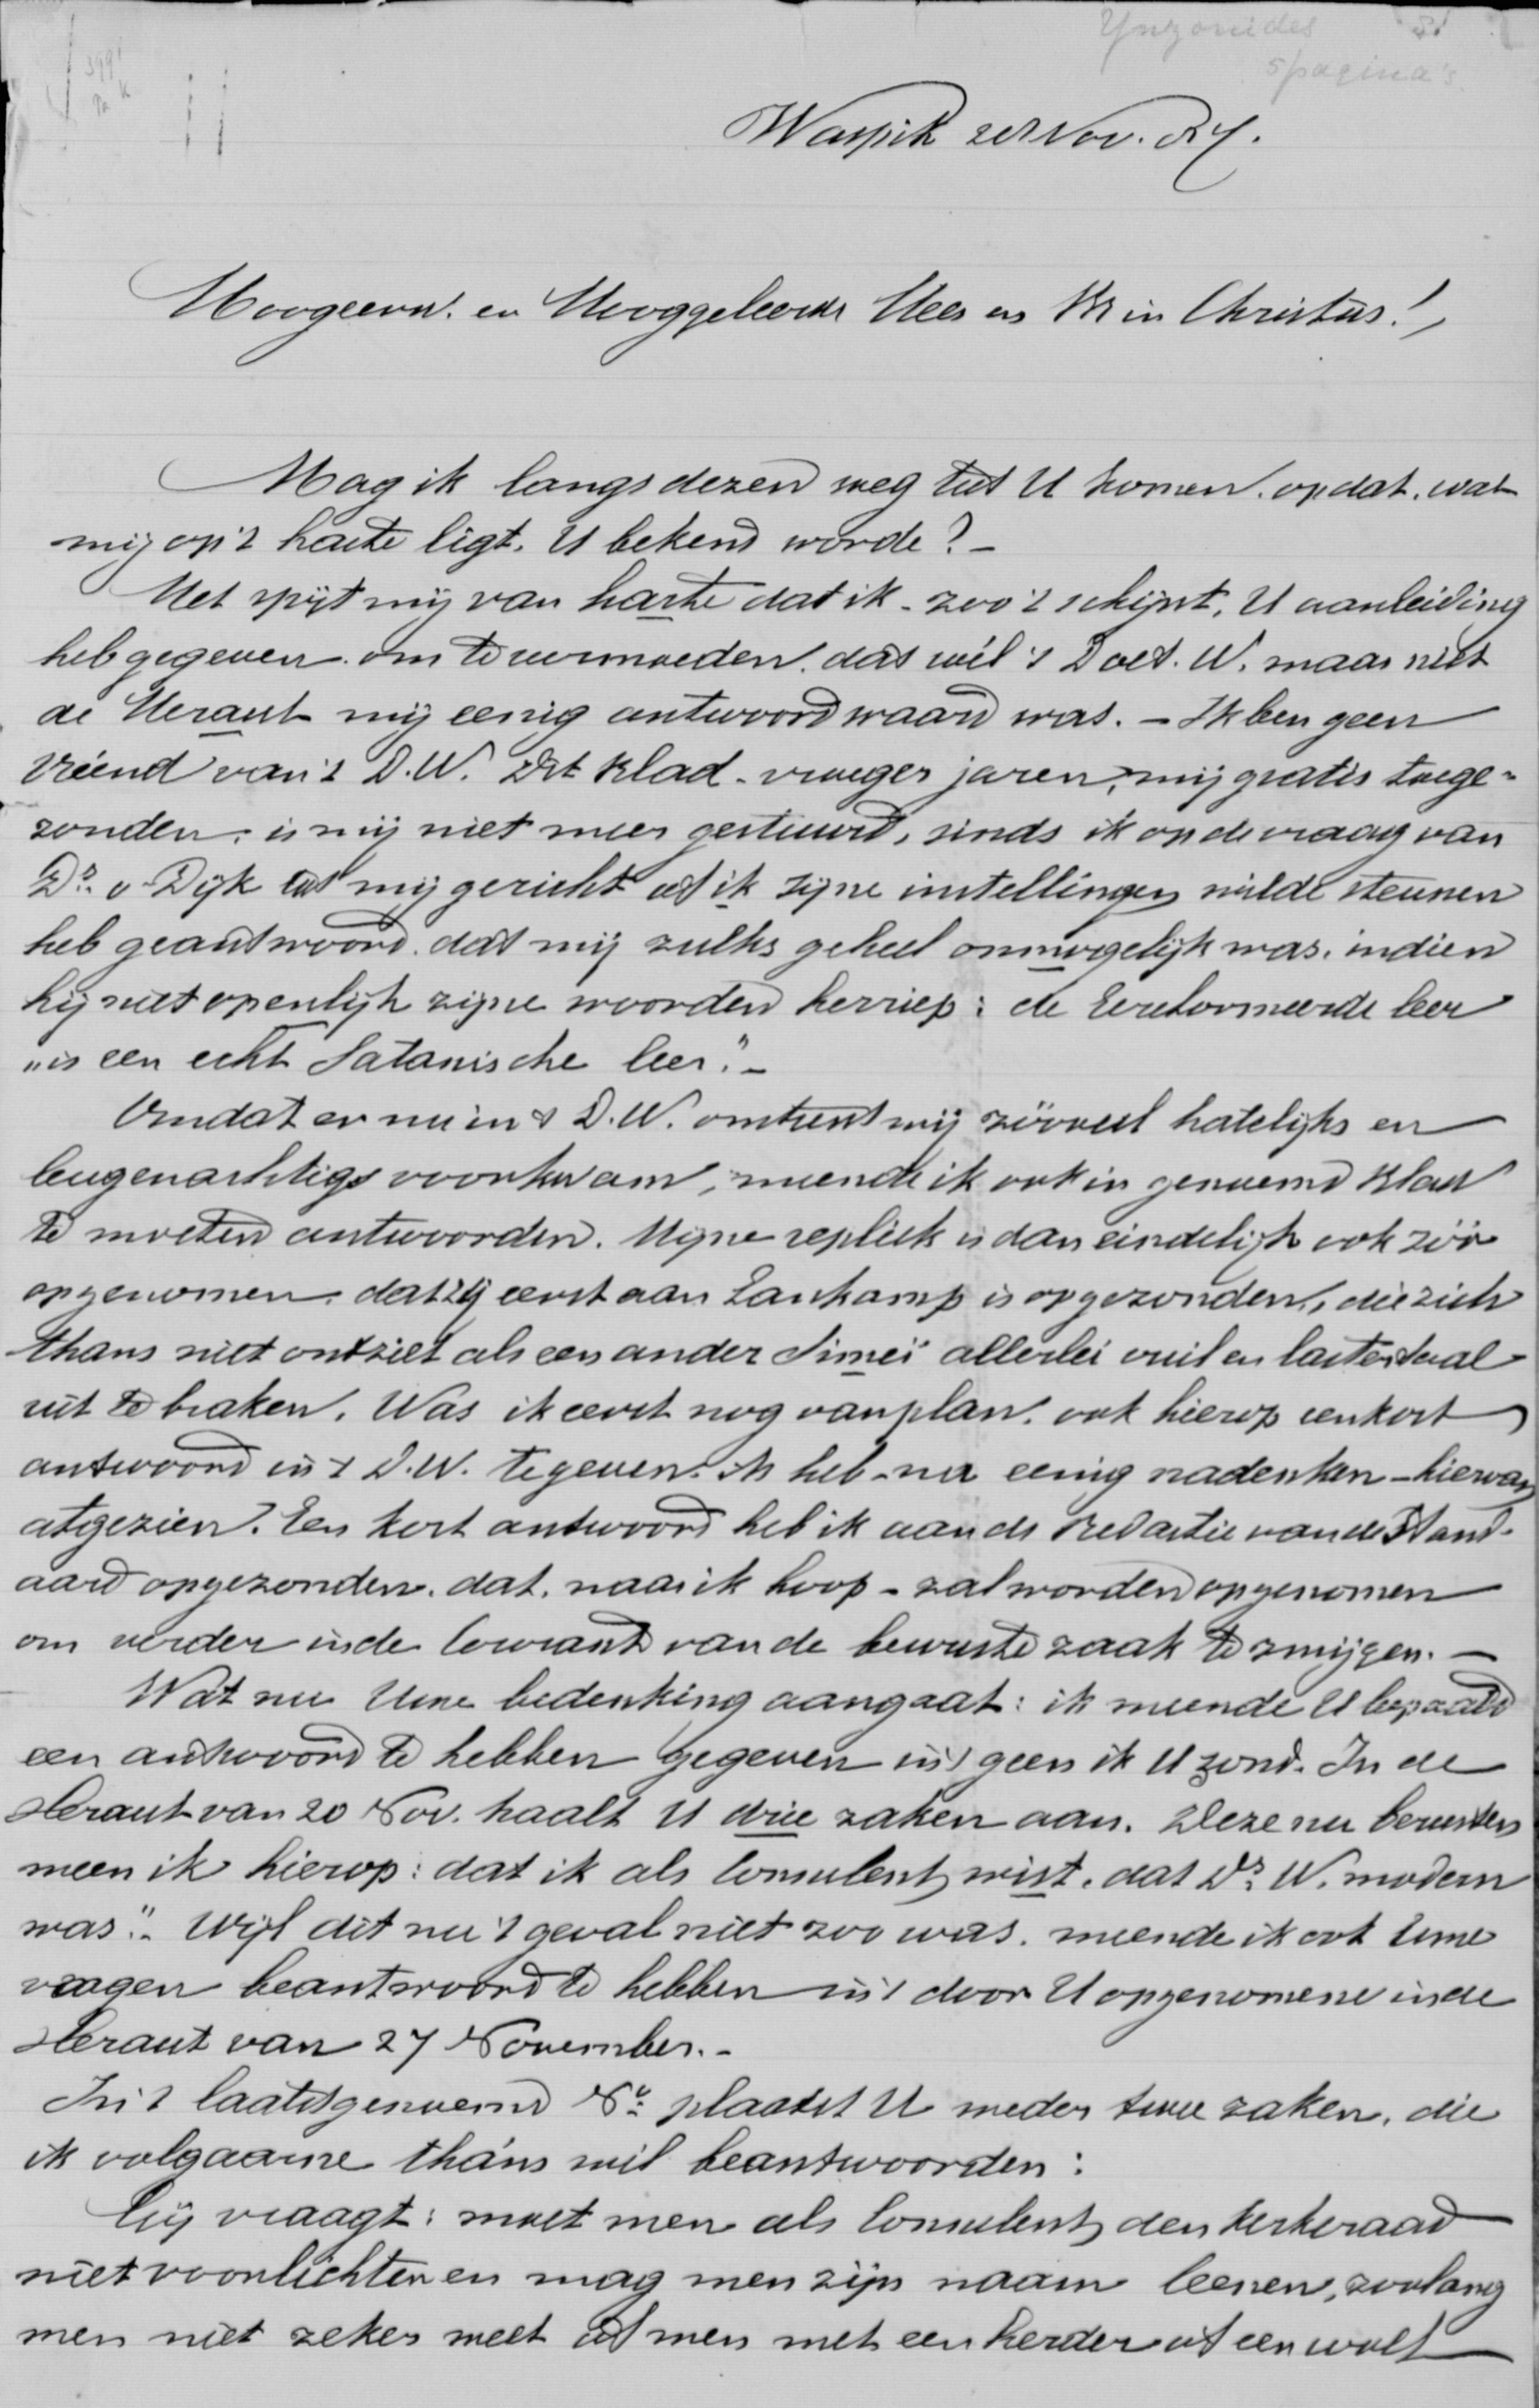 Ynzonides
5 pagina's
Waspik 28 Nov. 87.
Hoogeerw. en Hooggeleerde Heer en Br in Christus!,
Mag ik langs dezen weg tot U komen, opdat, wat
mij op 't harte ligt, U bekend worde? –
Het spijt mij van harte dat ik – zoo 't schijnt, U aanleiding
heb gegeven, om te vermoeden, dat wèl 't Doet. W. maar niet
de Heraut mij eenig antwoord waard was. – Ik ben geen
vriend van 't D.W. Dit blad – vroeger jaren, mij gratis toege=
zonden, is mij niet meer gestuurd, sinds ik op de vraag van
Ds. v. Dijk tot mij gericht of ik zijne instellingen wilde steunen
heb geantwoord, dat mij zulks geheel onmogelijk was, indien
hij niet openlijk zijne woorden herriep: de Gereformeerde leer
„is een echt Satanische leer." –
Omdat er nu in 't D.W. omtrent mij zóóveel hatelijks en
leugenachtigs voorkwam, meende ik ook in genoemd blad
te moeten antwoorden. Mijne repliek is dan eindelijk ook zóó
opgenomen, dat zij eerst aan Lankamp is opgezonden, die zich
thans niet ontziet als een ander Simeï allerlei vuil en lastertaal
uit te braken. Was ik eerst nog van plan, ook hierop een kort
antwoord in 't D.W. te geven. Ik heb – na eenig nadenken – hiervan
afgezien. Een kort antwoord heb ik aan de redactie van de Stand-
aard opgezonden, dat, naar ik hoop – zal worden opgenomen
om verder in de Courant van de bewuste zaak te zwijgen. –
Wat nu Uwe bedenking aangaat: ik meende U bepaald
een antwoord te hebben gegeven in 't geen ik U zond. In de
Heraut van 20 Nov. haalt U drie zaken aan. Deze nu berusten
meen ik hierop: dat ik als Consulent wist, dat Ds. W. modern
was". Wijl dit nu 't geval niet zoo was, meende ik ook Uwe
vragen beantwoord te hebben in 't door U opgenomene in de
Heraut van 27 November. –
In 't laatstgenoemd No. plaatst U weder twee zaken, die
ik volgaarne tháns wil beantwoorden:
Gij vraagt: moet men als Consulent den kerkeraad
niet voorlichten en mag men zijn naam leenen, zoolang
men niet zeker weet of men met een herder of een wolf